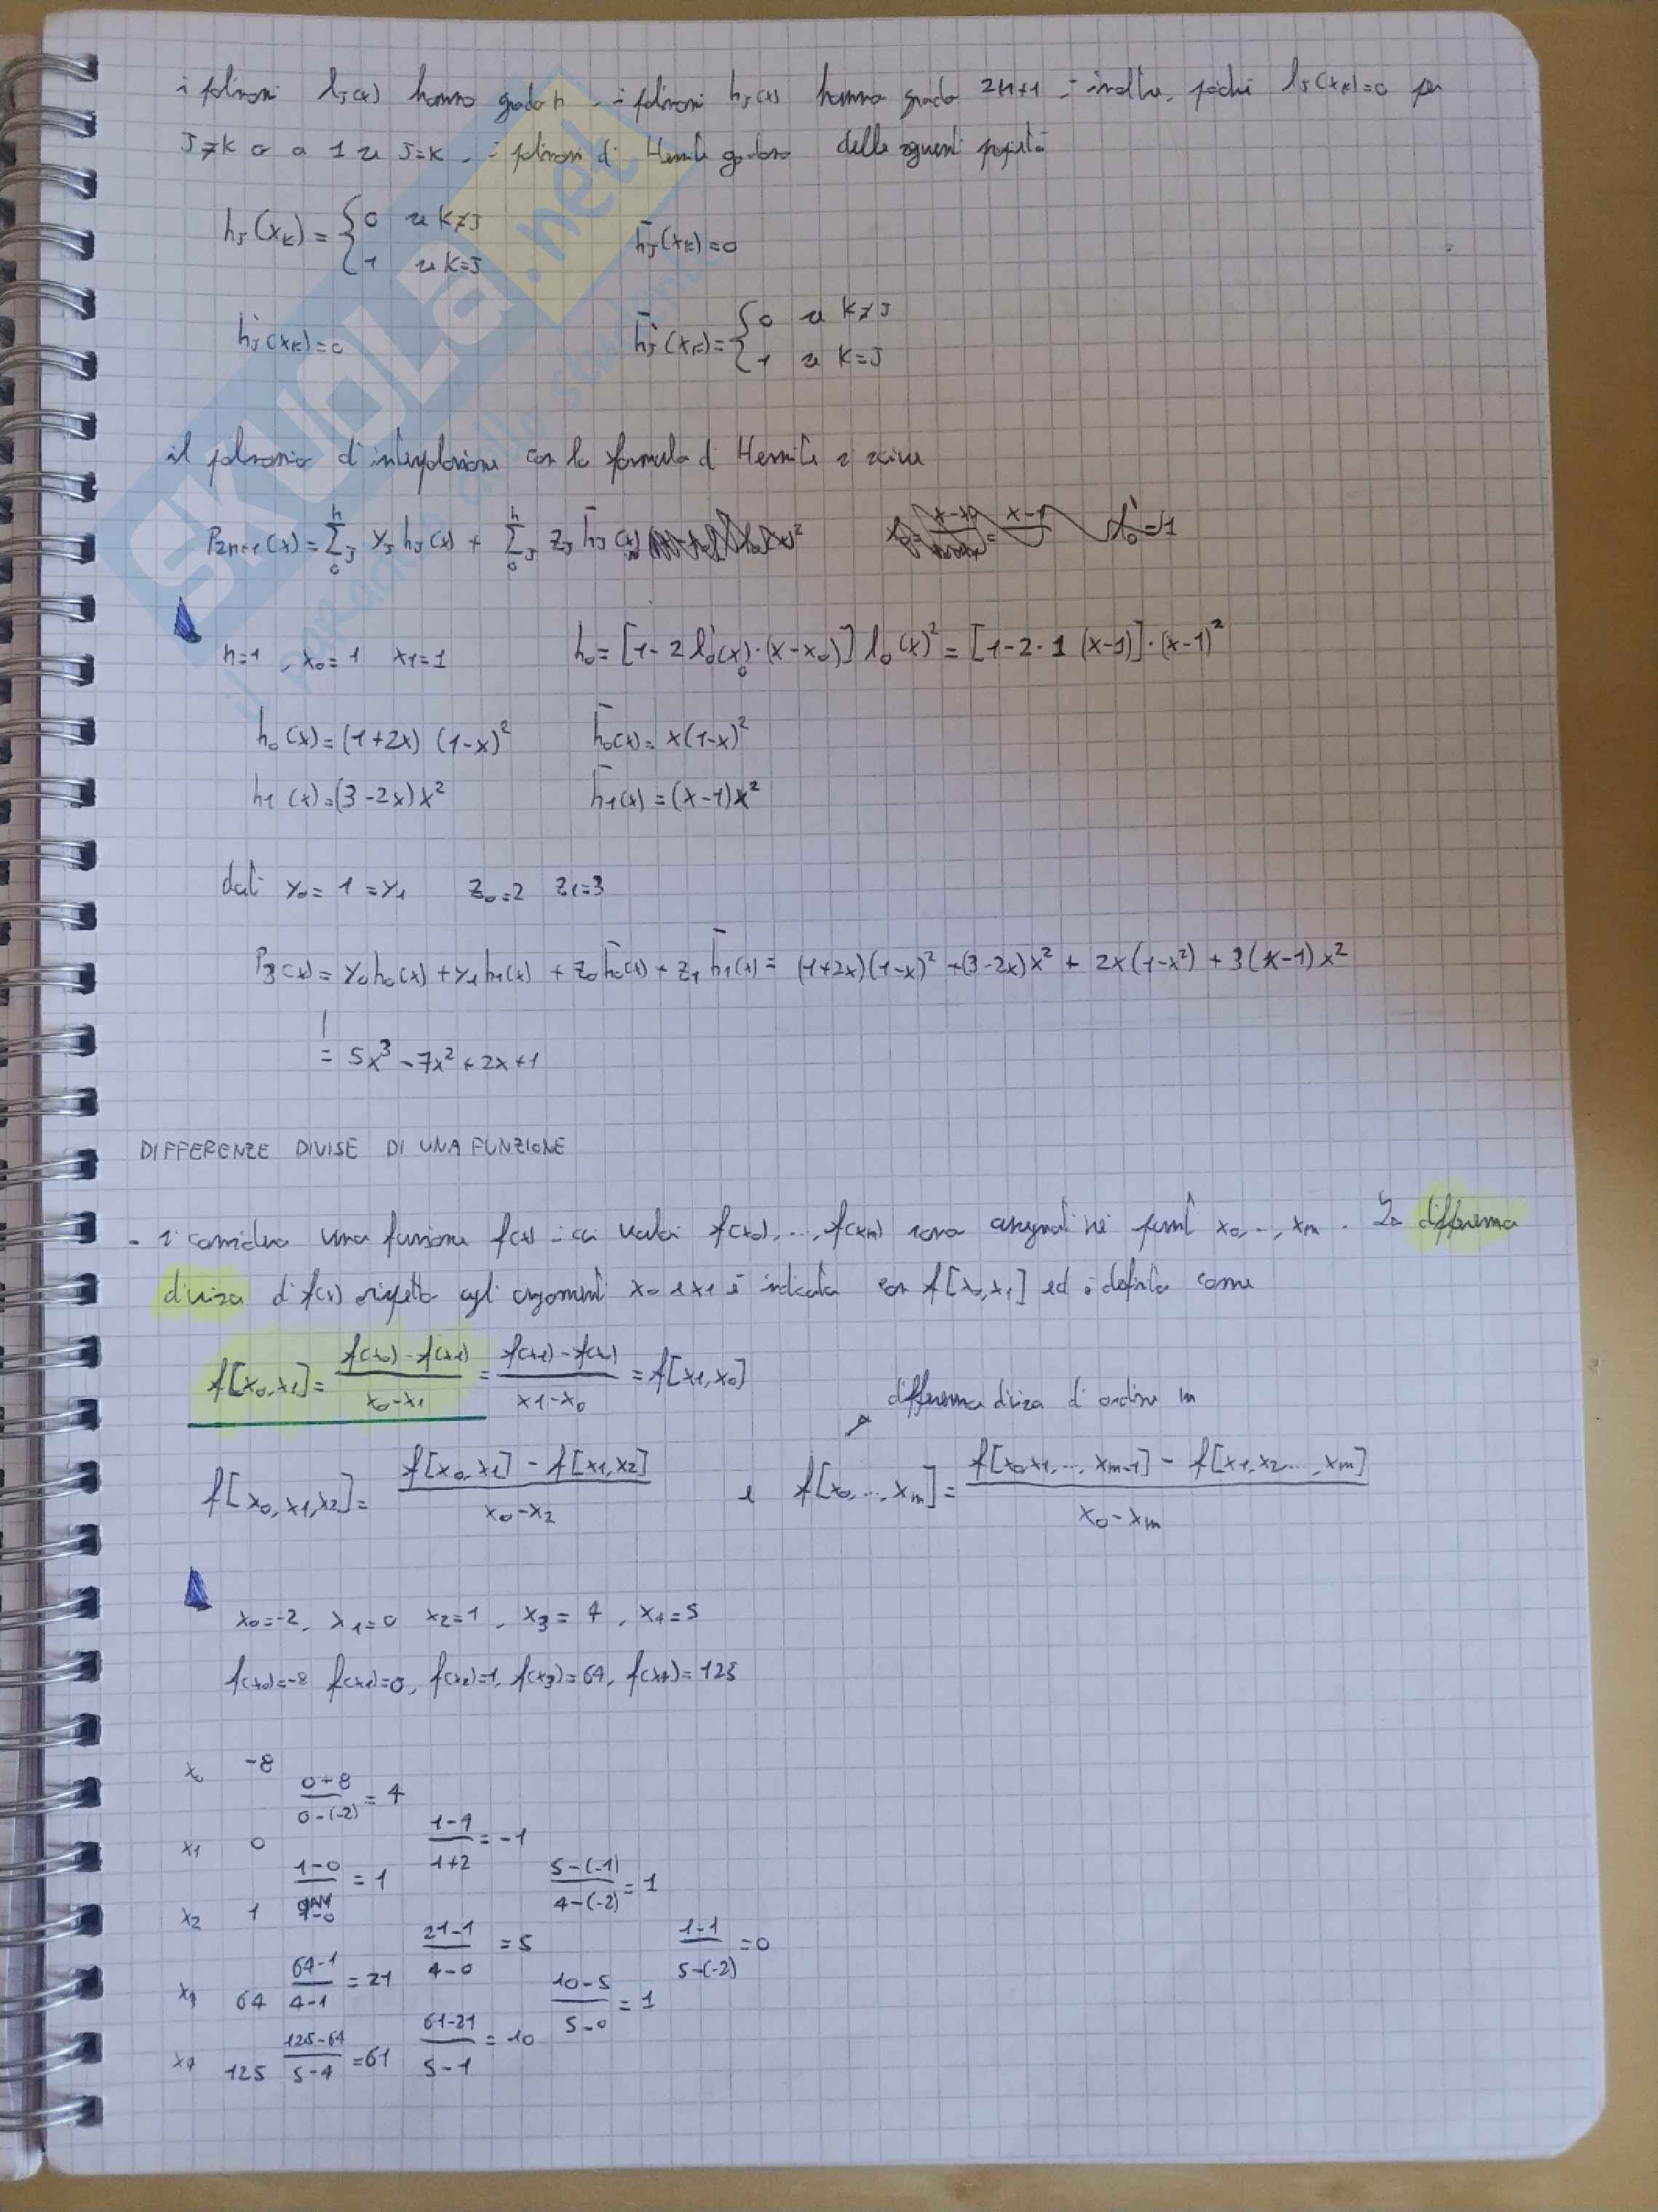 i polinomi lⱼ(x) hanno grado n, i polinomi hⱼ(x) hanno grado 2n+1, inoltre, poiché lⱼ(xₖ)=0 per
J≠K o a 1 se J=K, i polinomi di Hermite godono delle seguenti proprietà
hⱼ(xₖ) = { 0 se K≠J ; 1 se K=J    h̄ⱼ(xₖ)=0
h'ⱼ(xₖ)=0    h̄'ⱼ(xₖ) = { 0 se K≠J ; 1 se K=J
il polinomio d'interpolazione con la formula di Hermite si scrive
P₂ₙ₊₁(x) = Σⱼ₀ⁿ yⱼ hⱼ(x) + Σⱼ₀ⁿ zⱼ h̄ⱼ(x)
n=1, x₀=1 x₁=1    h₀=[1-2 l'₀(x₀)·(x-x₀)] l₀(x)² = [1-2·1 (x-1)]·(x-1)²
h₀(x)=(1+2x) (1-x)²    h̄₀(x)= x(1-x)²
h₁(x)=(3-2x)x²    h̄₁(x)=(x-1)x²
dati y₀=1=y₁    z₀=2 z₁=3
P₃(x)= y₀h₀(x)+y₁h₁(x)+z₀h̄₀(x)+z₁h̄₁(x)= (1+2x)(1-x)²+(3-2x)x² + 2x(1-x²) + 3(x-1)x²
= 5x³-7x²+2x+1
DIFFERENZE DIVISE DI UNA FUNZIONE
- si considera una funzione f(x) i cui valori f(x₀),...,f(xₘ) sono assegnati nei punti x₀,..,xₘ. La differenza
divisa di f(x) rispetto agli argomenti x₀ e x₁ è indicata con f[x₀,x₁] ed è definita come
f[x₀,x₁]= (f(x₀)-f(x₁))/(x₀-x₁) = (f(x₁)-f(x₀))/(x₁-x₀) = f[x₁,x₀]
differenza divisa di ordine m
f[x₀,x₁,x₂]= (f[x₀,x₁] - f[x₁,x₂])/(x₀-x₂)    e    f[x₀,..,xₘ]= (f[x₀,x₁,..,xₘ₋₁] - f[x₁,x₂..,xₘ])/(x₀-xₘ)
x₀=-2, x₁=0 x₂=1, x₃=4, x₄=5
f(x₀)=-8 f(x₁)=0, f(x₂)=1, f(x₃)=64, f(x₄)=125
x₀ -8
(0+8)/(0-(-2)) = 4
x₁ 0    (1-4)/(1+2) = -1
(1-0)/(1-0) = 1    (5-(-1))/(4-(-2)) = 1
x₂ 1    (21-1)/(4-0) = 5    (1-1)/(5-(-2)) = 0
(64-1)/(4-1) = 21    (10-5)/(5-0) = 1
x₃ 64    (61-21)/(5-1) = 10
(125-64)/(5-4) = 61
x₄ 125
SKUOLA.net
il paradiso dello studente